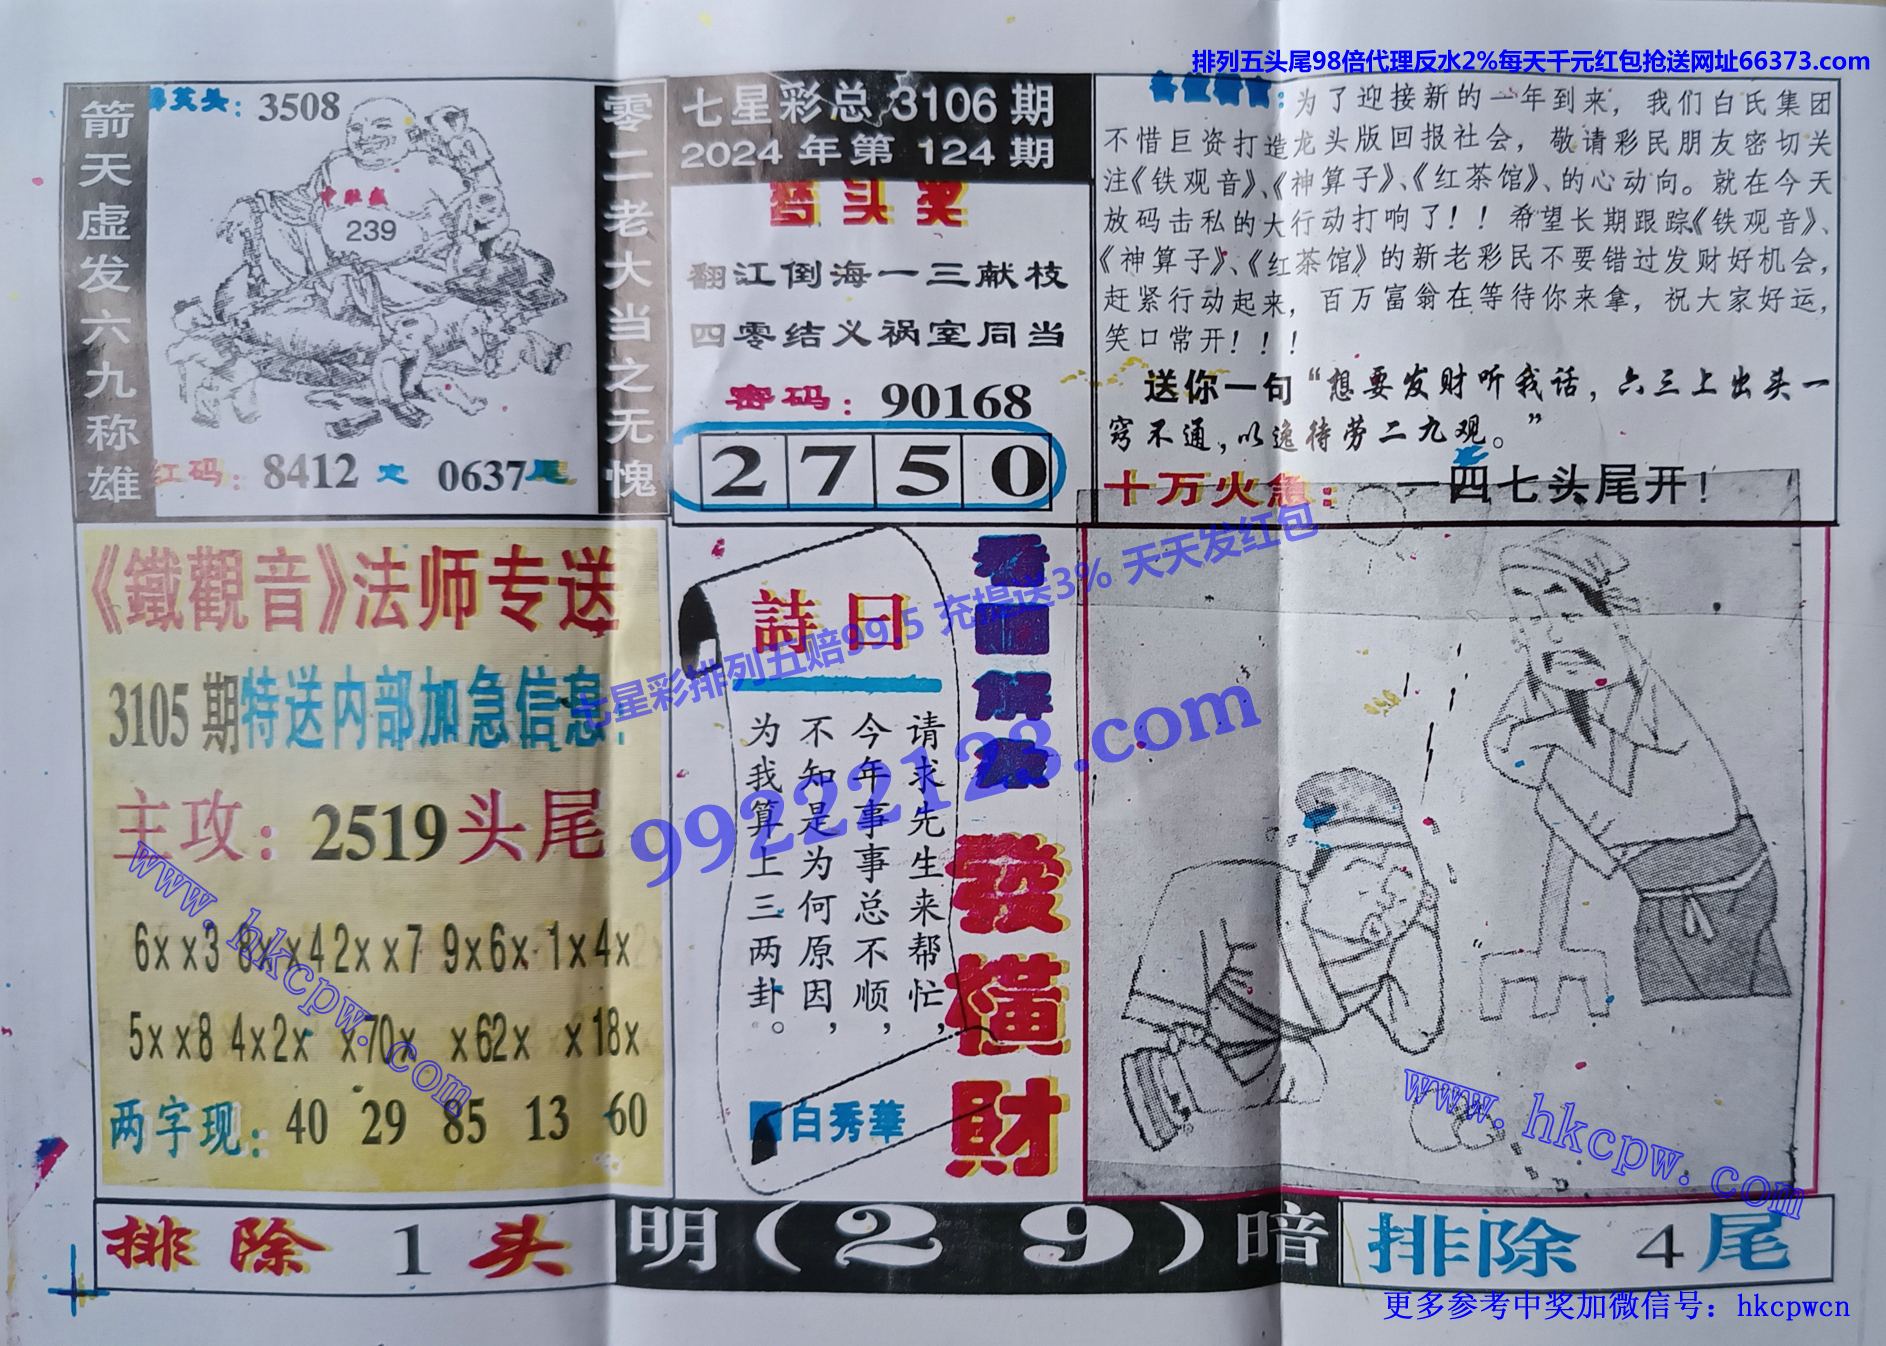 排列五头尾98倍代理反水2%每天千元红包抢送网址66373.com
箭天虚发六九称雄
3508
239
红码：8412 灾 0637尾
零二老大当之无愧
七星彩总 3106 期
2024 年第 124 期
梦头奖
翻江倒海一三献枝
四零结义祸室同当
密码：90168
2 7 5 0
为了迎接新的一年到来，我们白氏集团
不惜巨资打造龙头版回报社会，敬请彩民朋友密切关
注《铁观音》、《神算子》、《红茶馆》、的心动向。就在今天
放码击私的大行动打响了！！希望长期跟踪《铁观音》、
《神算子》、《红茶馆》的新老彩民不要错过发财好机会，
赶紧行动起来，百万富翁在等待你来拿，祝大家好运，
笑口常开！！！
送你一句“想要发财听我话，六三上出头一
窍不通，以逸待劳二九观。”
十万火急：一四七头尾开！
《鐵觀音》法师专送
3105期特送内部加急信息：
主攻：2519头尾
6xx3 8xx4 2xx7 9x6x 1x4x
5xx8 4x2x x70x x62x x18x
两字现：40 29 85 13 60
詩曰
请求先生来帮忙，
今年事事总不顺，
不知是为何原因，
为我算上三两卦。
白秀華
看图解
發横財
七星彩排列五赔99.5 充提送3% 天天发红包
99222123.com
www.hkcpw.com
www.hkcpw.com
排除 1 头
明（29）暗
排除 4 尾
更多参考中奖加微信号：hkcpwcn